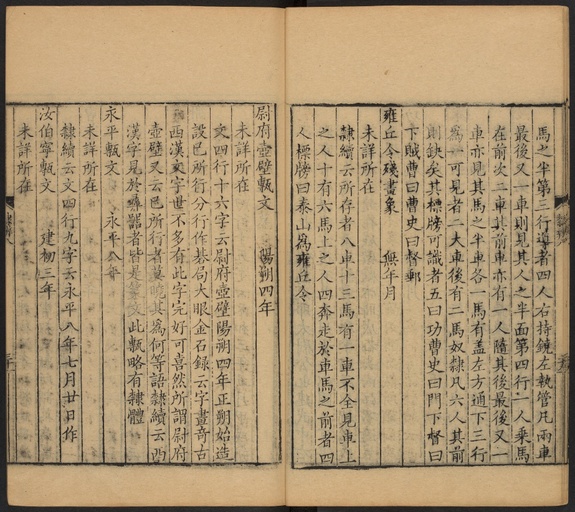 馬之半第三行導者四人右持鏡左執管凡兩車
最後又一車則見其人之半面第四行二人乘馬
在前次二車其前車亦有一人隨其後最後又一
車亦見其馬之半車各一馬有蓋左方通下三行
為一可見者二大車後有二馬奴隸凡六人其前
則缺矣其標牓可識者五曰功曹史曰門下督曰
下賊曹曰曹史曰督郵
雍丘令殘畫象 無年月
未詳所在
隸續云所存者八車十三馬有一車不全見車上
之人十有六馬上之人四奔走於車馬之前者四
人標牓曰泰山為雍丘令
尉府壺壁甎文 陽朔四年
未詳所在
文四行十六字云尉府壺壁陽朔四年正朔始造
設已所行分行作碁局大眼金石錄云字畫奇古
西漢文字世不多有此字完好可喜然所謂尉府
壺壁又云已所行者莫曉其為何等語隸續云西
漢字見於器者皆是此甎略有隸體
永平甎文 永平八年
未詳所在
隸續云文四行九字云永平八年七月廿日作
汝伯寧甎文 建初三年
未詳所在